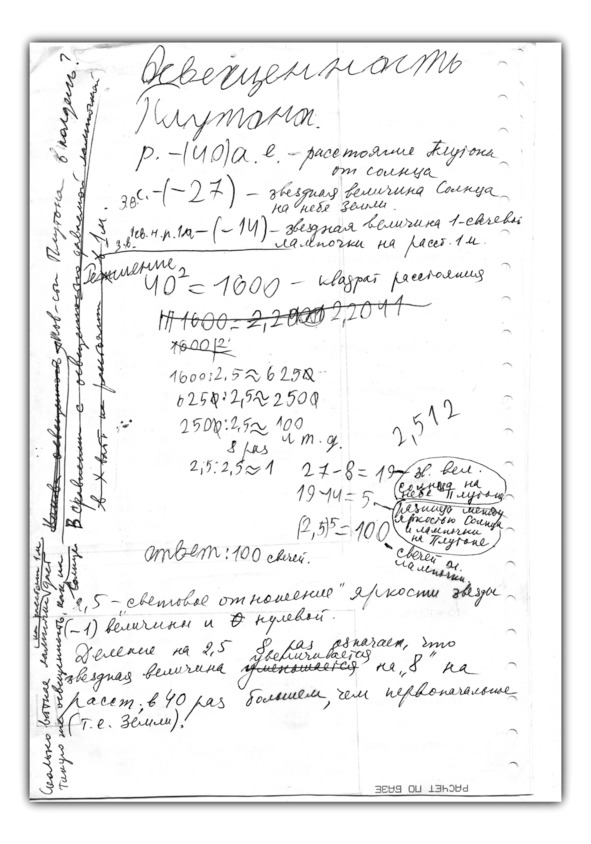 Освещенность
Плутона.
р. –(40) а.е. – расстояние Плутона
от солнца
з.в.с. –(–27) – звездная величина Солнца
на небе Земли.
з.в. 1св.н.р.1м –(–14) – звездная величина 1-свечевой
лампочки на расст. 1 м.
Решение
40² = 1600 – квадрат расстояния
1600 = 2,2 2,2041
1600 |2
1600:2,5≈6250
6250:2,5≈2500
2500:2,5≈100
и т.д.
8 раз
2,5:2,5≈1
2,512
27–8=19 – зв. вел.
солнца на
небе Плутона
19–14=5 – разница между
яркостью Солнца
и лампочки
на Плутоне
(2,5)⁵=100 – свечей
лампочки
ответ: 100 свечей.
2,5 – „световое отношение" яркости звезды
(–1) величины и 0 нулевой.
Деление на 2,5 8 раз означает, что
звездная величина уменьшается увеличивается на „8" на
расст., в 40 раз большем, чем первоначальное
(т.е. Земли).
Сколько ватная лампочка дает на расстоян. 1 м.
такую же освещенность, как на Плутоне солнце
в полдень?
В сравнении с освещенностью даваемой лампочкой
в X ватт на расстоянии в 1 м.
РАСЧЕТ ПО БАЗЕ